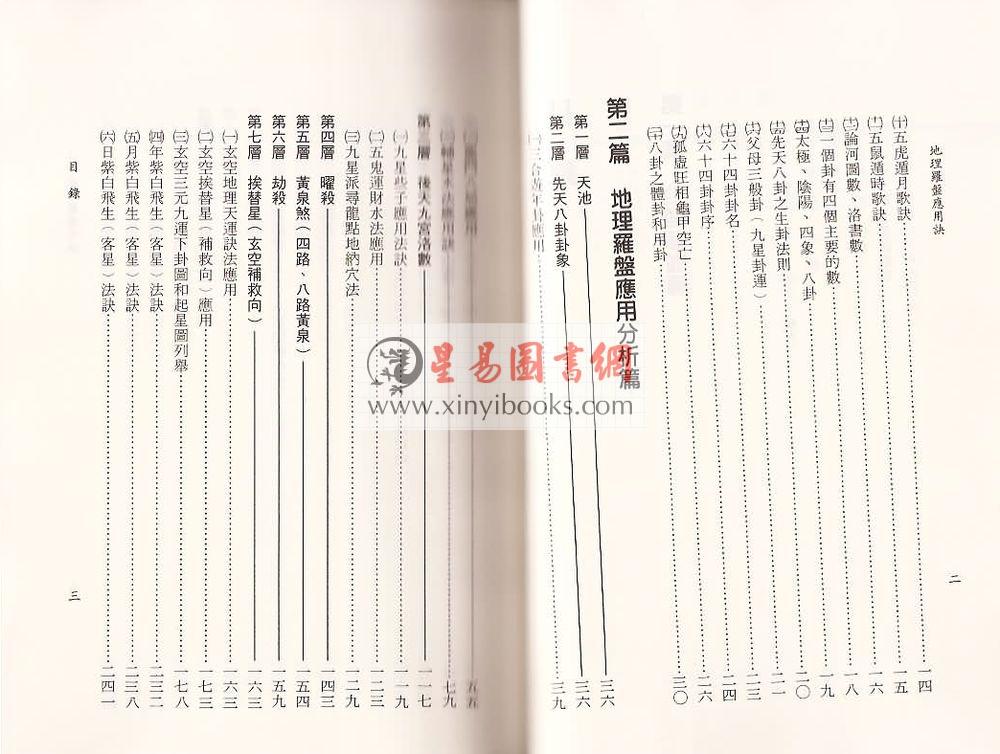 地理羅盤應用訣
㈩五虎遁月歌訣……一四
(十一)五鼠遁時歌訣……一五
(十二)論河圖數、洛書數……一六
(十三)一個卦有四個主要的數……一八
(十四)太極、陰陽、四象、八卦……一九
(十五)先天八卦之生卦法則……二〇
(十六)父母三般卦(九星卦運)……二一
(十七)六十四卦卦名……
(十八)六十四卦卦序……二四
(十九)孤虛旺相龜甲空亡……二六
(二十)八卦之體卦和用卦……三〇
第二篇 地理羅盤應用分析篇
第一層 天池——三六
第二層 先天八卦卦象——三六
㈠三合黃年卦應用……三九
二
……五五
㈢輔星水法應用訣……七九
第三層 後天九宮洛數——一一七
㈠九星些子應用法訣……一一九
㈡五鬼運財水法應用……一二三
㈢九星派尋龍點地納穴法……一二九
第四層 曜殺——一四三
第五層 黃泉煞(四路、八路黃泉)——一五四
第六層 劫殺——一五九
第七層 挨替星(玄空補救向)——一六三
㈠玄空地理天運訣法應用……一六三
㈡玄空挨替星(補救向)應用……一七三
㈢玄空三元九運下卦圖和起星圖列舉……一七八
㈣年紫白飛生(客星)法訣……二三二
㈤月紫白飛生(客星)法訣……二三八
㈥日紫白飛生(客星)法訣……二四一
目錄
三
星易圖書網
www.xinyibooks.com